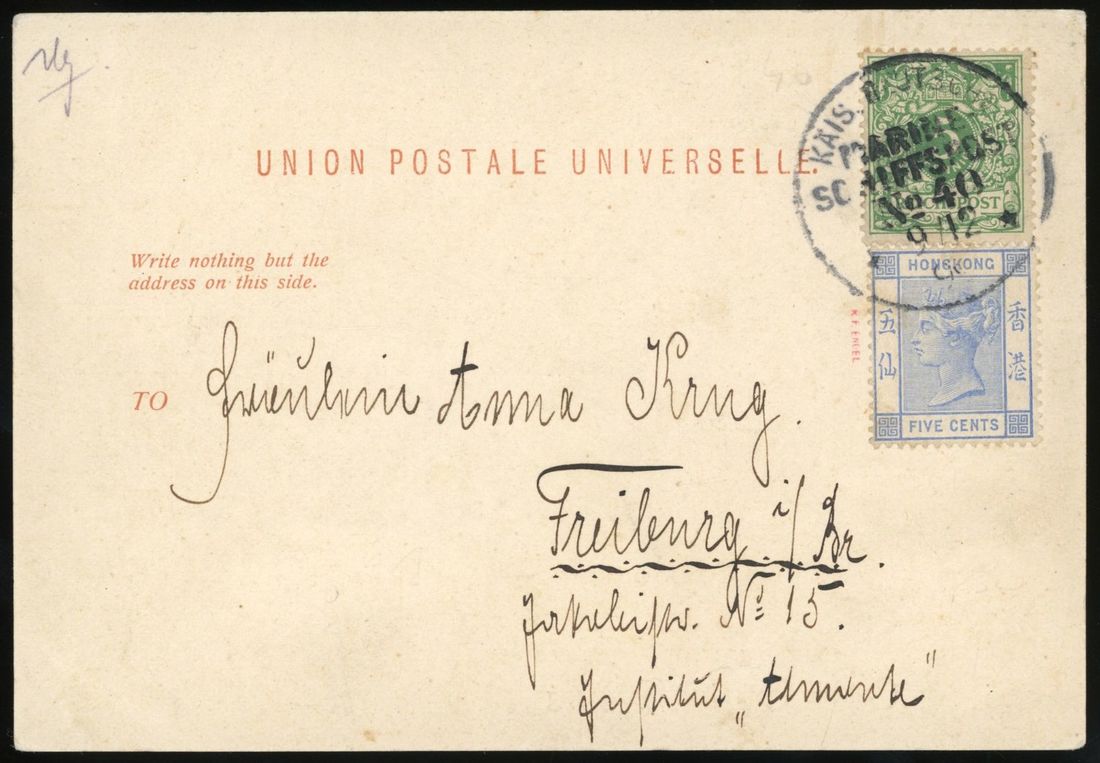 UNION POSTALE UNIVERSELLE.
KAIS. DEUTSCHE
MARINE
SCHIFFSPOST
No 40
9/12
REICHSPOST
5
HONGKONG
五仙
香港
FIVE CENTS
K. F. ENGEL
Write nothing but the
address on this side.
TO
Fräulein Anna Krug.
Freiburg i/Br.
No 15.
Institut „